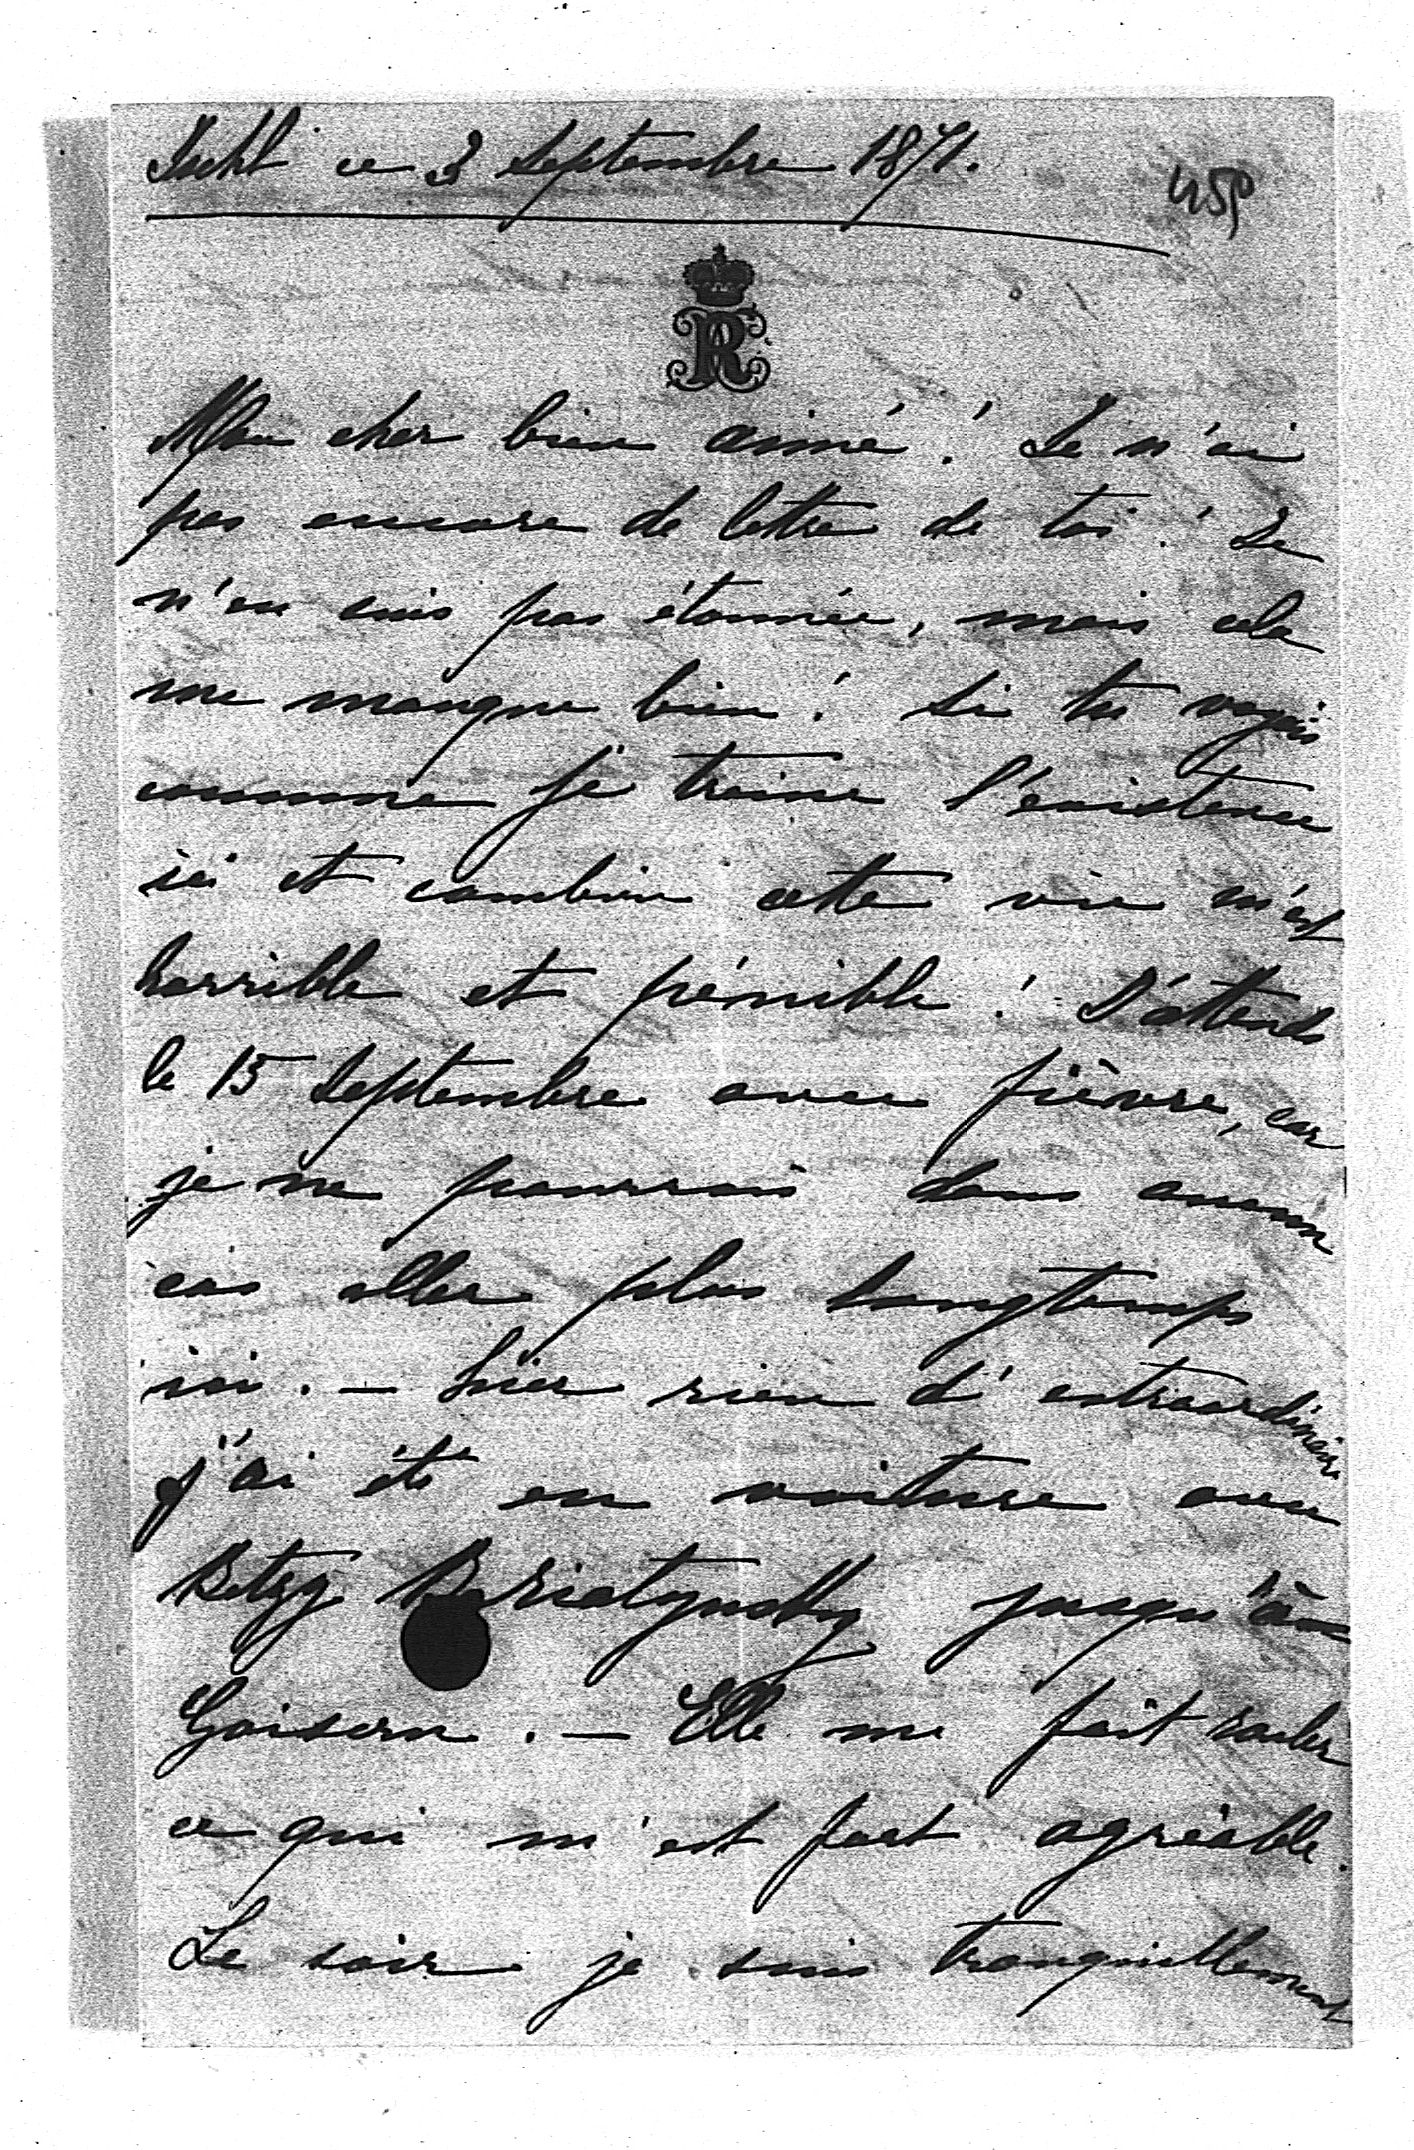 Ischl ce 3 Septembre 1871.
459
R
Mon cher bien aimé! Je n'ai
pas encore de lettre de toi! Je
n'en suis pas étonnée, mais cela
me manque bien! Si tu voyais
comme je traine l'existence
ici et combien cette vie m'est
horrible et pénible! J'attends
le 15 Septembre avec fièvre, car
je ne pourrais dans aucun
cas aller plus longtemps
ici. — Hier rien d'extraordinaire
j'ai été en voiture avec
Betzy Bariatynsky jusqu'à
Goisern. — Elle me fait rouler
ce qui m'est fort agréable.
Le soir je suis tranquillement